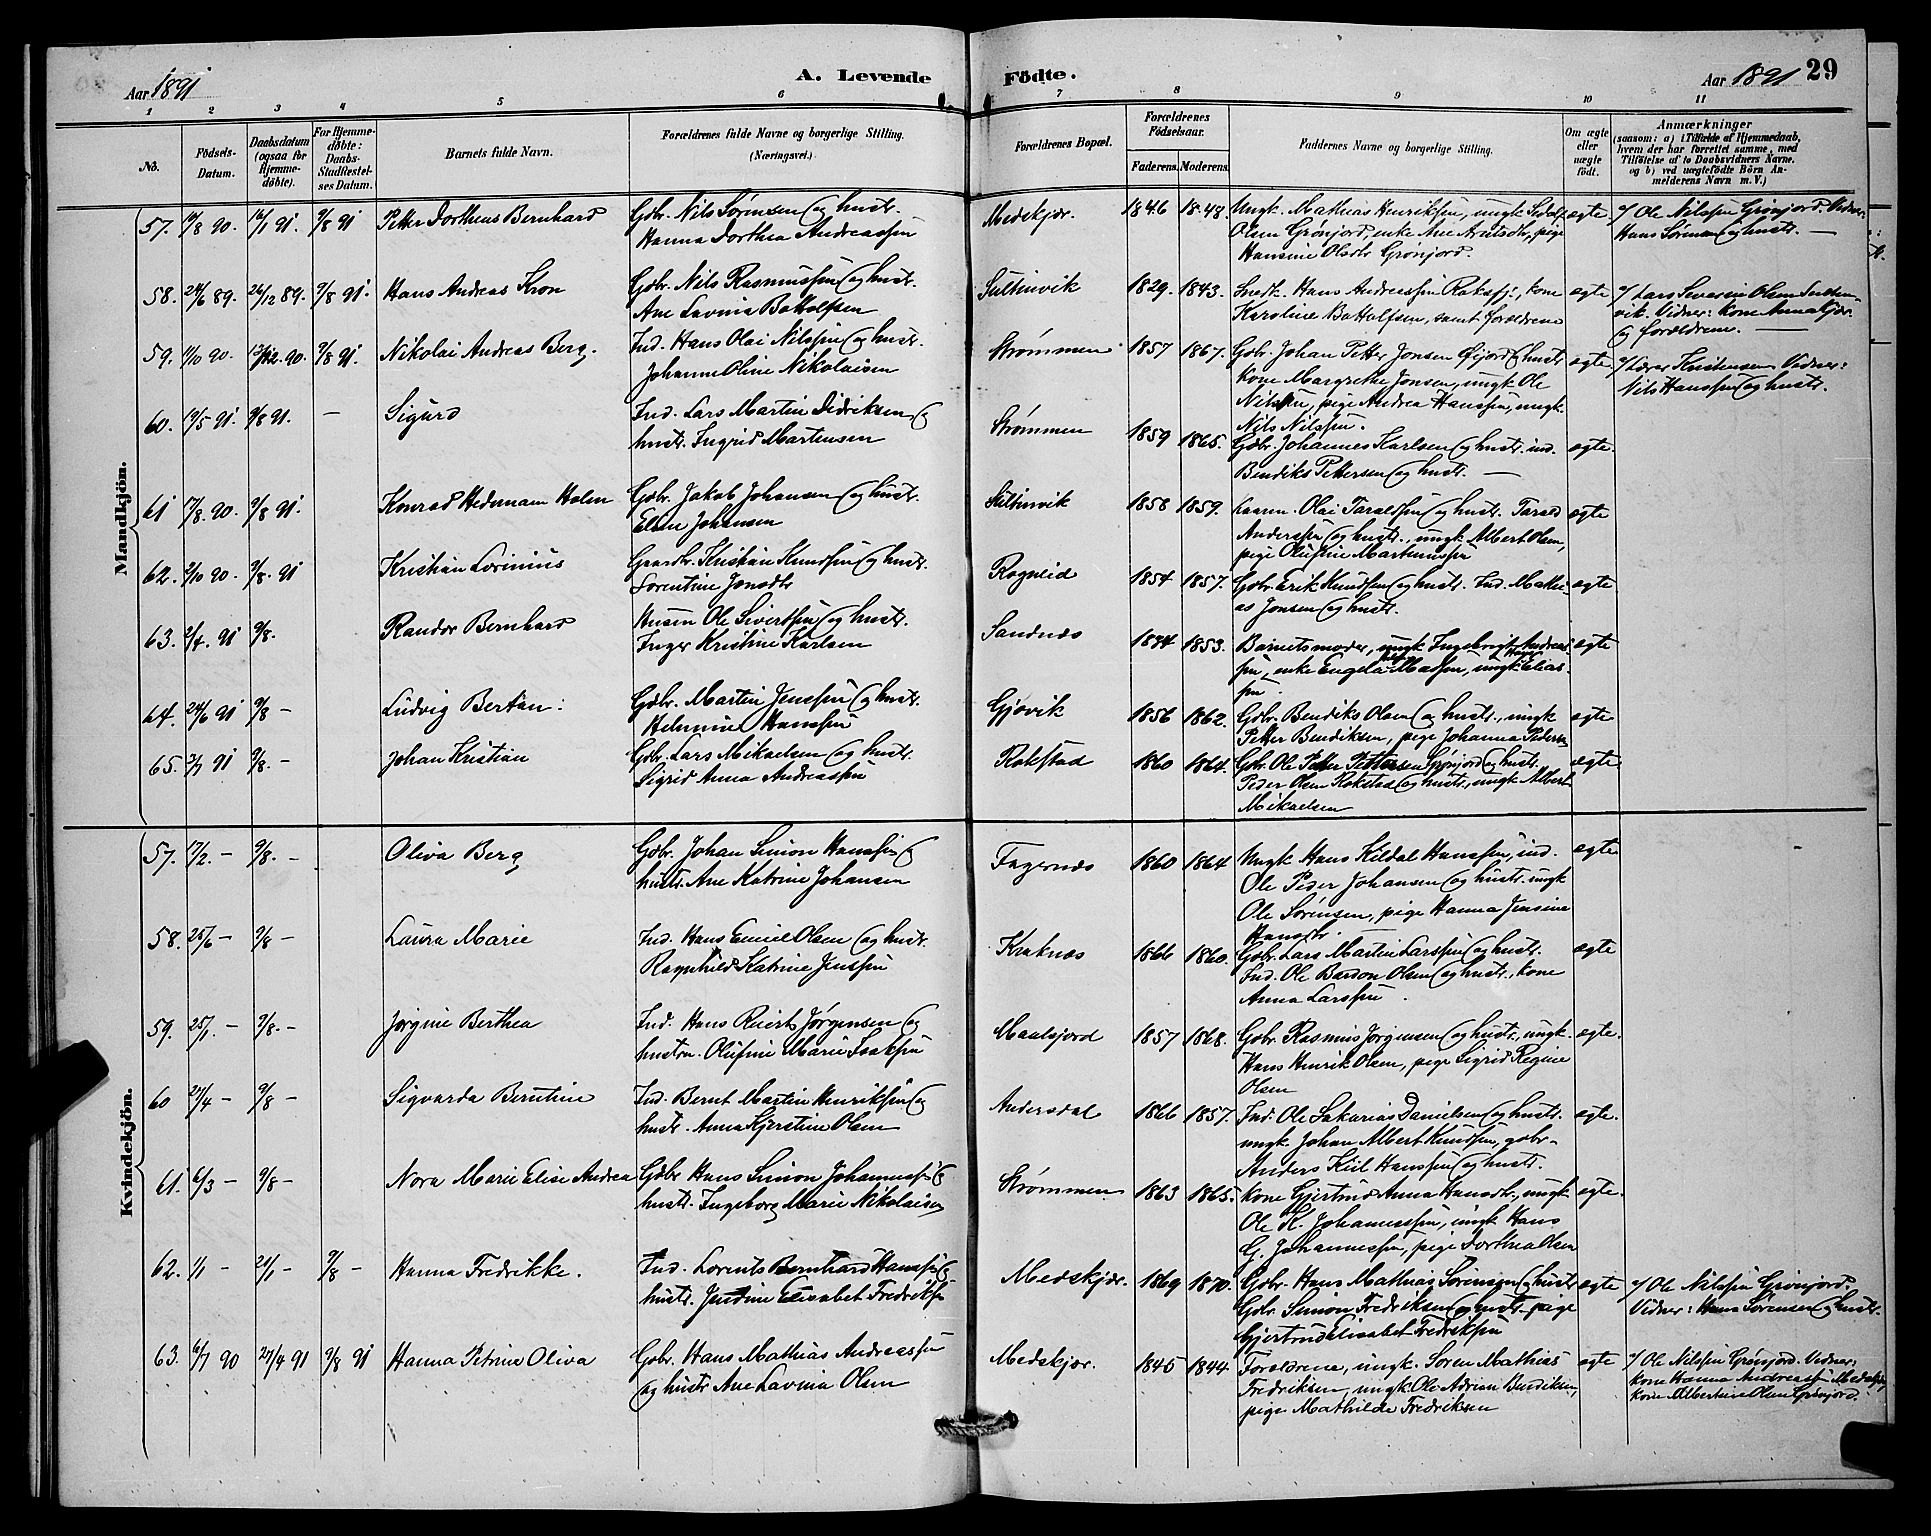 Aar 1891
A. Levende
Fødte.
Aar 1891
29
1 2 3 4 5 6 7 8 9 10 11
No.
Fødsels-
Datum.
Daabsdatum
(ogsaa for
Hjemme-
døbte).
For Hjemme-
døbte:
Daabs-
Stadfestel-
ses Datum.
Barnets fulde Navn.
Forældrenes fulde Navne og borgerlige Stilling.
(Næringsvei.)
Forældrenes Bopæl.
Forældrenes
Fødselsaar.
Faderens.
Moderens.
Faddernes Navne og borgerlige Stilling.
Om ægte
eller
uægte
født.
Anmærkninger
(saasom: a) i Tilfælde af Hjemmedaab,
hvem der har forrettet samme, med
Tilføielse af to Daabsvidners Navne.
og b) ved uægtefødte Børn An-
melderens Navn m. V.)
Mandkjøn.
57. 19/8 90. 16/1 91. 9/8 91 Petter Dortheus Bernhard Gbr. Nils Sørensen og hustr. Medskjær. 1846 1848. Ungk. Mathias Henriksen, ungk. ægte ./ Ole Nilssen Grønjord. Vidner:
Hanna Dorthea Andreassen Olsen Grønjord, enke Ane Arntsdtr, pige Hans Sørensen og hustr. —
Hansine Olsdtr Grønjord.
58. 24/6 89. 26/12 89. 9/8 91. Hans Andreas Kron Gbr. Nils Rasmussen og hustr. Sultinvik 1829. 1843. Snedk. Hans Andreassen Raksfj., kone ægte ./ Lars Severin Olsen Sultin-
Ane Lavina Bottolfsen Karoline Bottolfsen, samt forældrene vik. Vidner: Kone Anna Kjær.
og forældrene. —
59. 11/10 90. 13/12. 90. 9/8 91. Nikolai Andreas Berg. Ind. Hans Olai Nilssen og hustr. Strømmen 1857 1867. Gbr. Johan Petter Jonsen Øijord og hustr ægte ./ Lærer Kristensen Vidner:
Johanne Oline Nikolaisen Kone Margrethe Jonsen, ungk Ole Nils Hanssen og hustr.
Nilssen, pige Andrea Hanssen, ungk.
Nils Nilssen.
60. 19/5 91. 9/8 91. — Sigurd Ind. Lars Martin Didriksen og Strømmen 1859 1865. Gbr. Johannes Karlsen og hustr. ind. ægte.
hustr. Ingrid Martensen Bendiks Pettersen og hustr. —
61 17/8. 90. 9/8 91. Konrad Hedemann Holm Gbr. Jakob Johansen og hustr. Sultinvik 1858 1859. Olai Taraldsen og hustr. Tarald ægte
Elen Johansen Anderssen og hustr., ungk Albert Olsen,
pige Olufine Martinussen
62. 2/10 90. 9/8. 91 Kristian Lorinius Kristian Knudsen og hustr. Rogneid 1854 1857. Gbr. Erik Knudsen og hustr. Ind. Mathi- ægte
Lorentine Jonsdtr as Jonsen og hustr.
63. 2/4. 91 9/8. Randor Bernhard Husm Ole Sivertsen og hustr. Sandnes 1834 1853. Barnets moder, ungk Ingebrigt Andreas- ægte
Inger Kristine Karlsen sen, enke Engelia Massen, ungk. Hans Elias-
sen.
64. 24/6 91 9/8 — Ludvig Bertin: Gbr. Martin Jenssen og hustr. Gjøvik 1856 1862. Gbr. Bendiks Olsen og hustr., ungk ægte
Helmine Hanssen Petter Bendiksen, pige Johanna Pedersen
65. 2/7 91 9/8. — Johan Kristian Gbr. Lars Mikaelsen og hustr. Rakstad 1860 1864. Gbr. Ole Petter Pettersen Grønjord og hustr. ægte.
Sigrid Anna Andreassen Peder Olsen Rokstad og hustr., ungk Albert
Mikaelsen
Kvindekjøn.
57. 17/2. — 9/8. — Oliva Berg Gbr. Johan Simon Hanssen og Fagernes 1860 1864 Ungk Hans Kildal Hanssen, ind. ægte
hustr. Ane Katrine Johansen Ole Peder Johansen og hustr. ungk
Ole Sørensen, pige Hanna Jensine
Hansdtr. —
58. 25/6 — 9/8 — Laura Marie Ind. Hans Emil Olsen og hustr. Kraknes 1866 1860. Gbr. Lars Martin Larssen og hustr. ægte
Ragnhild Katrine Jenssen Ind. Ole Bardon Olsen og hustr., kone
Anna Larssen.
59. 25/1. — 9/8. — Jørgine Berthea Ind. Hans Rierts Jørgensen og Maalsjord 1857 1868. Gbr. Rasmus Jørgensen og hustr., ungk. ægte.
hustru. Olufine Marie Isaksen Hans Henrik Olsen, pige Sigrid Regine
Olsen
60 27/4 — 9/8 — Sigvarda Berntine Ind. Bernt Martin Henriksen og Andersdal 1866 1857. Ind. Ole Sakarias Danielsen og hustr. ægte.
hustr. Anna Kjerstine Olsen ungk. Johan Albert Knudsen, gbr.
Anders Kiil Hanssen og hustr.
61. 6/3 — 9/8 — Nora Marie Elise Andrea Gbr Hans Simon Johannessen og Strømmen 1863 1865. Kone Gjertrud Anna Hansdtr., ungk ægte.
hustr. Ingeborg Marie Nikolaisen Ole K. Johannessen, ungk Hans
G. Johannessen, pige Dorthea Olsen
62. 1/1 — 21/1 — 9/8 — Hanna Fredrikke. Ind. Lorents Bernhard Hanssen og Medskjær. 1869 1870. Gbr. Hans Mathias Sørensen og hustr ægte ./ Ole Nilssen Grønjord.
hustr. Jensine Elisabet Fredriksen Gbr. Simon Fredriksen og hustr. pige Vidner: Hans Sørensen og hustr.
Gjertrud Elisabet Fredriksen
63. 6/7 90 27/4 91 9/8 91 Hanna Petrine Oliva Gbr. Hans Mathias Andreassen Medskjær. 1845 1844 Forældrene, ungk. Søren Mathias ægte ./ Ole Nilssen Grønjord. Vidner:
og hustr Ane Lavina Olsen Fredriksen, ungk Ole Adrian Bendiksen, kone Hanna Andreassen Medskjær
pige Mathilde Fredriksen kone Albertine Olsen Grønjord.